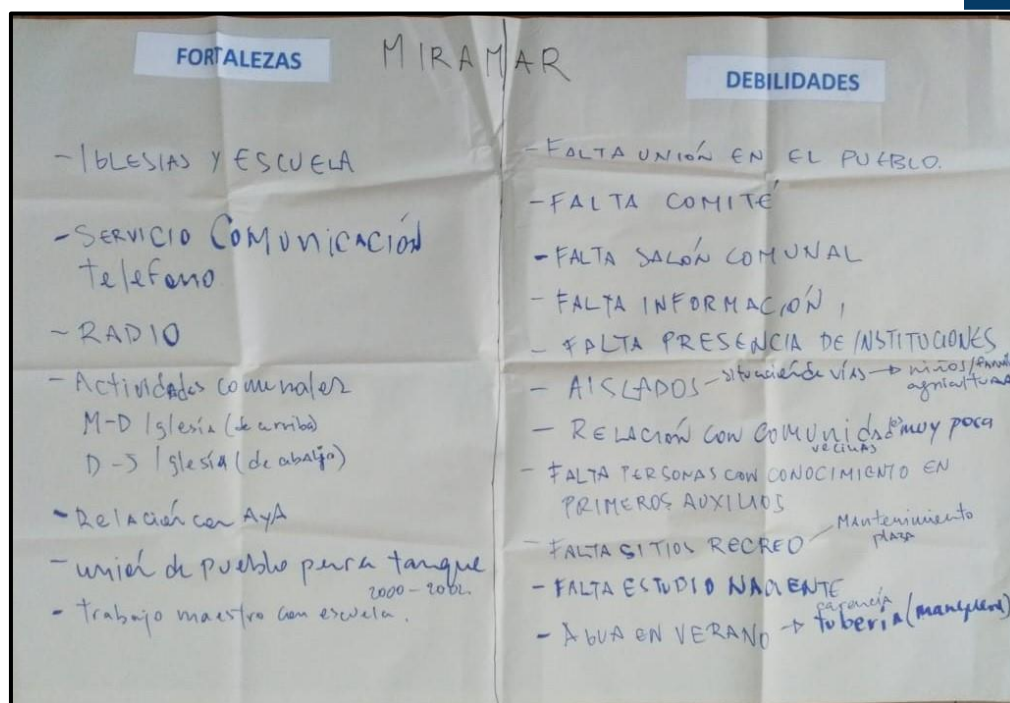 MIRAMAR
FORTALEZAS
- IGLESIAS Y ESCUELA
- SERVICIO COMUNICACIÓN
teléfono
- RADIO
- Actividades comunales
M-D Iglesia (de arriba)
D-J Iglesia (de abajo)
- Relación con AyA
- unión de pueblo para tanque
2000-2002.
- trabajo maestro con escuela.
DEBILIDADES
- FALTA UNIÓN EN EL PUEBLO.
- FALTA COMITÉ
- FALTA SALÓN COMUNAL
- FALTA INFORMACIÓN,
- FALTA PRESENCIA DE INSTITUCIONES
- AISLADOS - situación de vías → niños/
agricultura
- RELACIÓN CON COMUNIDAD muy poca
vecinas
- FALTA PERSONAS CON CONOCIMIENTO EN
PRIMEROS AUXILIOS
- FALTA SITIOS RECREO - Mantenimiento
plaza
- FALTA ESTUDIO NACIENTE
- AGUA EN VERANO → carencia
tubería (manguera)